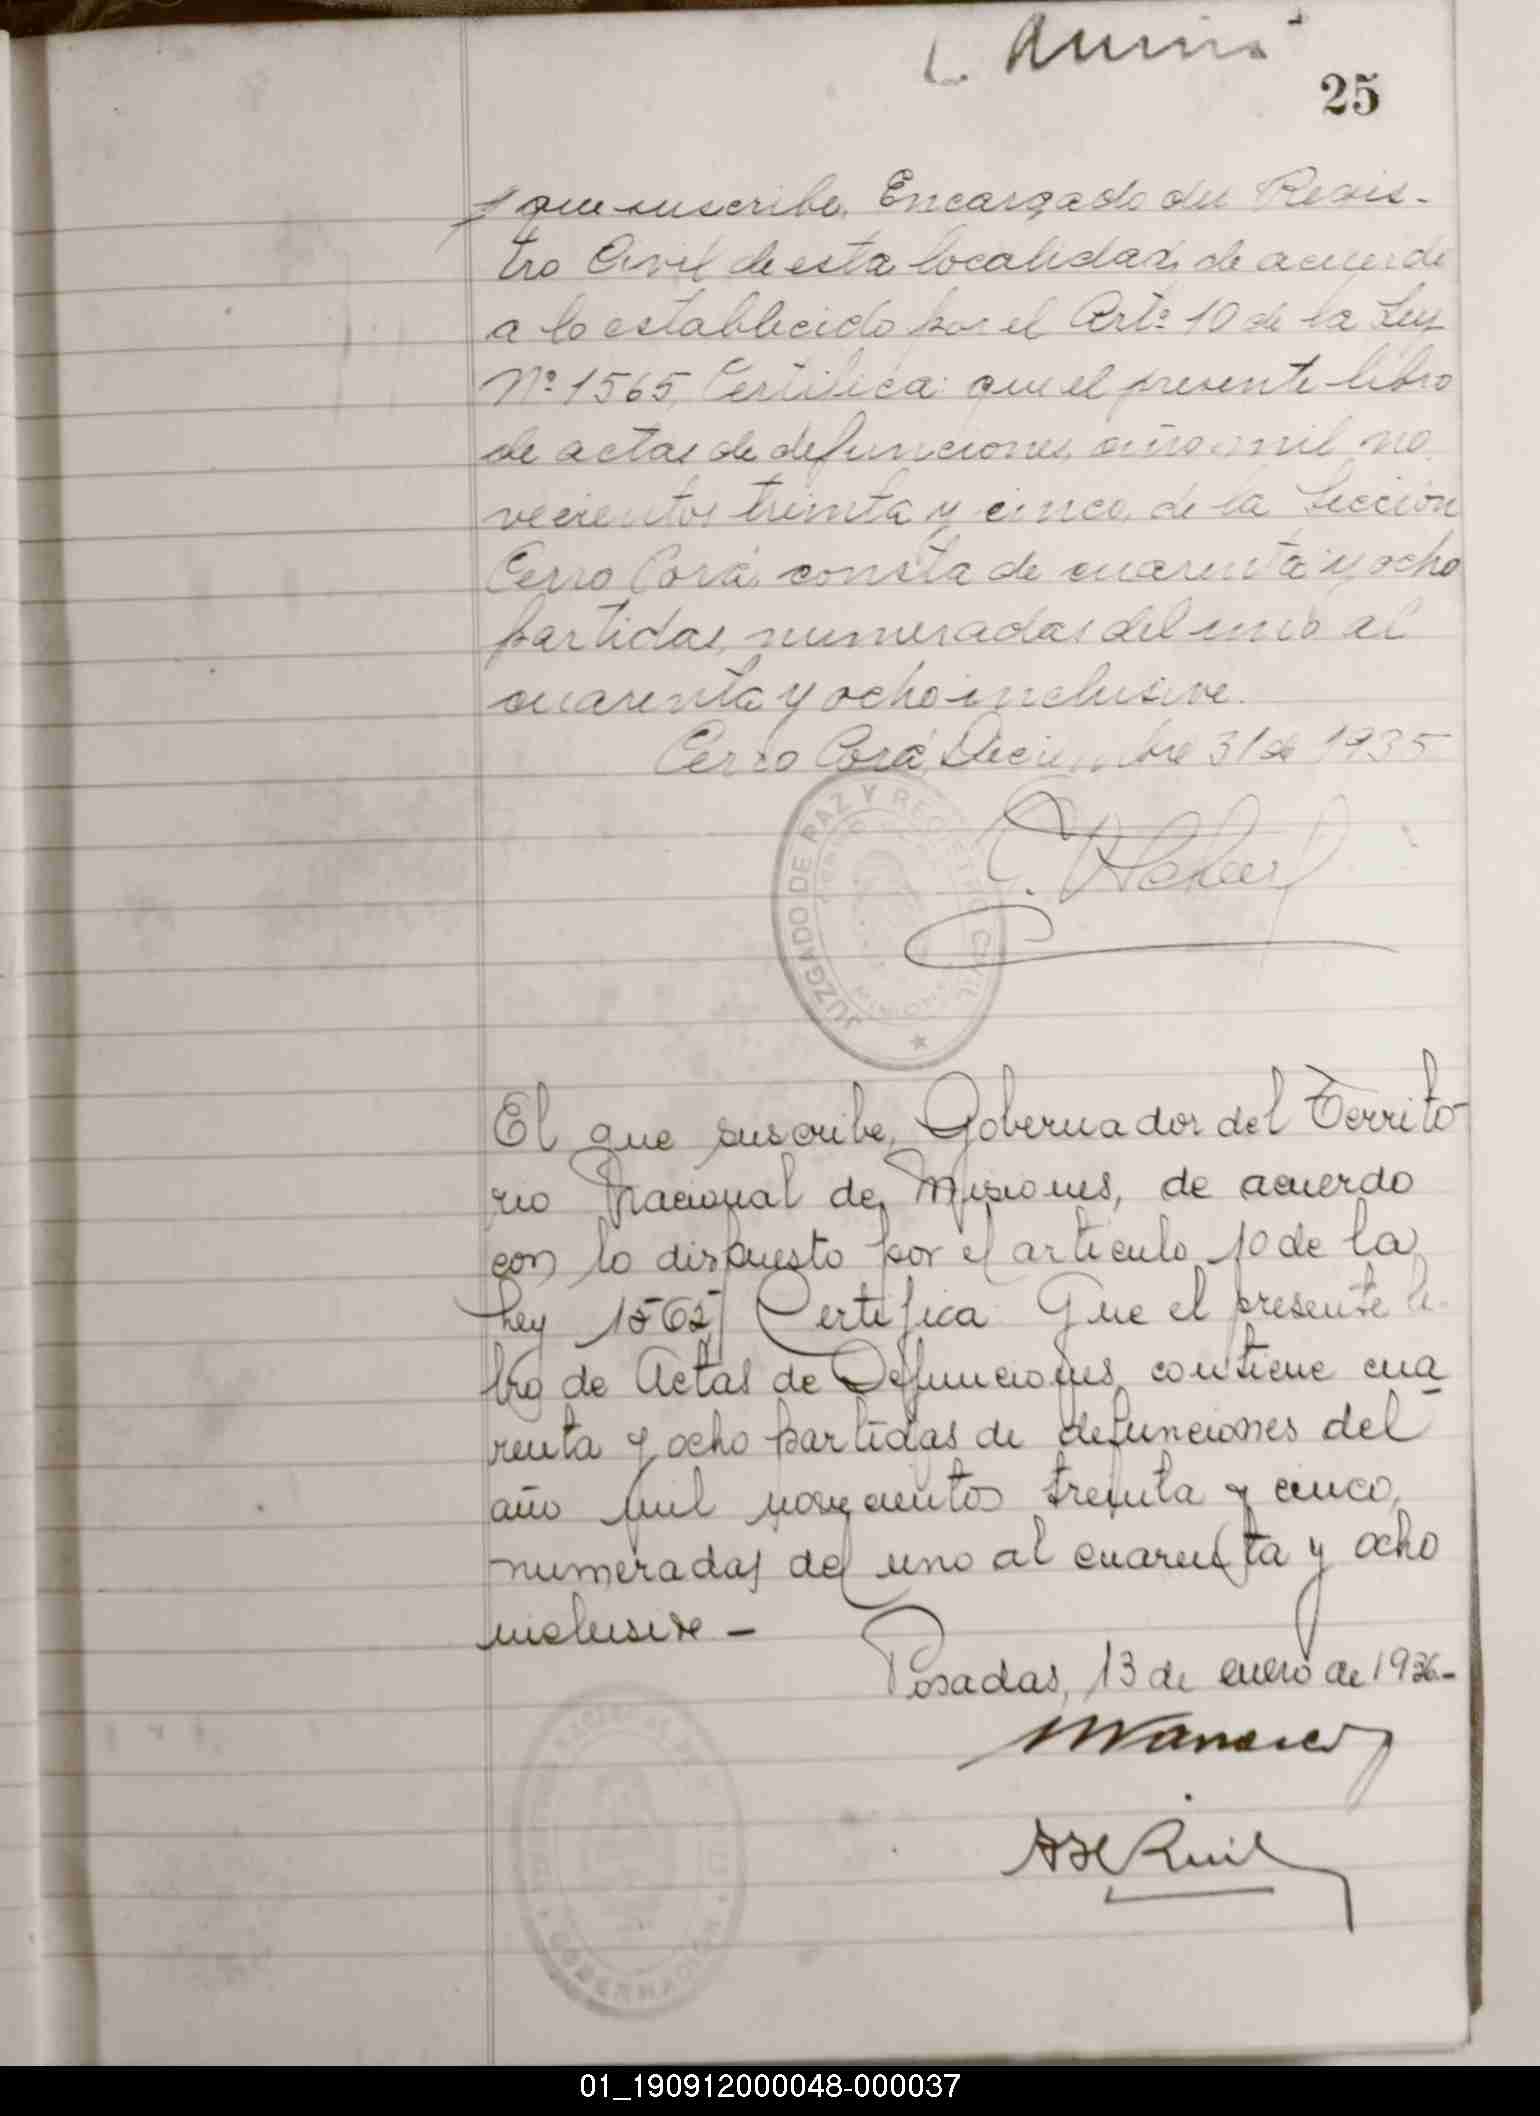 25
que suscribe, Encargado del Regis-
tro Civil de esta localidad, de acuerdo
a lo establecido por el Art.º 10 de la Ley
Nº 1565, Certifica: que el presente libro
de actas de defunciones, año mil no
vecientos treinta y cinco, de la Sección
Cerro Corá, consta de cuarenta y ocho
partidas, numeradas del uno al
cuarenta y ocho inclusive.
Cerro Corá, Diciembre 31 de 1935
JUZGADO DE PAZ Y REGISTRO CIVIL
El que suscribe, Gobernador del Territo-
rio Nacional de Misiones, de acuerdo
con lo dispuesto por el artículo 10 de la
Ley 1565, Certifica: Que el presente li-
bro de Actas de Defunciones, contiene cua
renta y ocho partidas de defunciones del
año mil novecientos treinta y cinco,
numeradas del uno al cuarenta y ocho
inclusive -
Posadas, 13 de enero de 1936.-
GOBERNACION
01_190912000048-000037